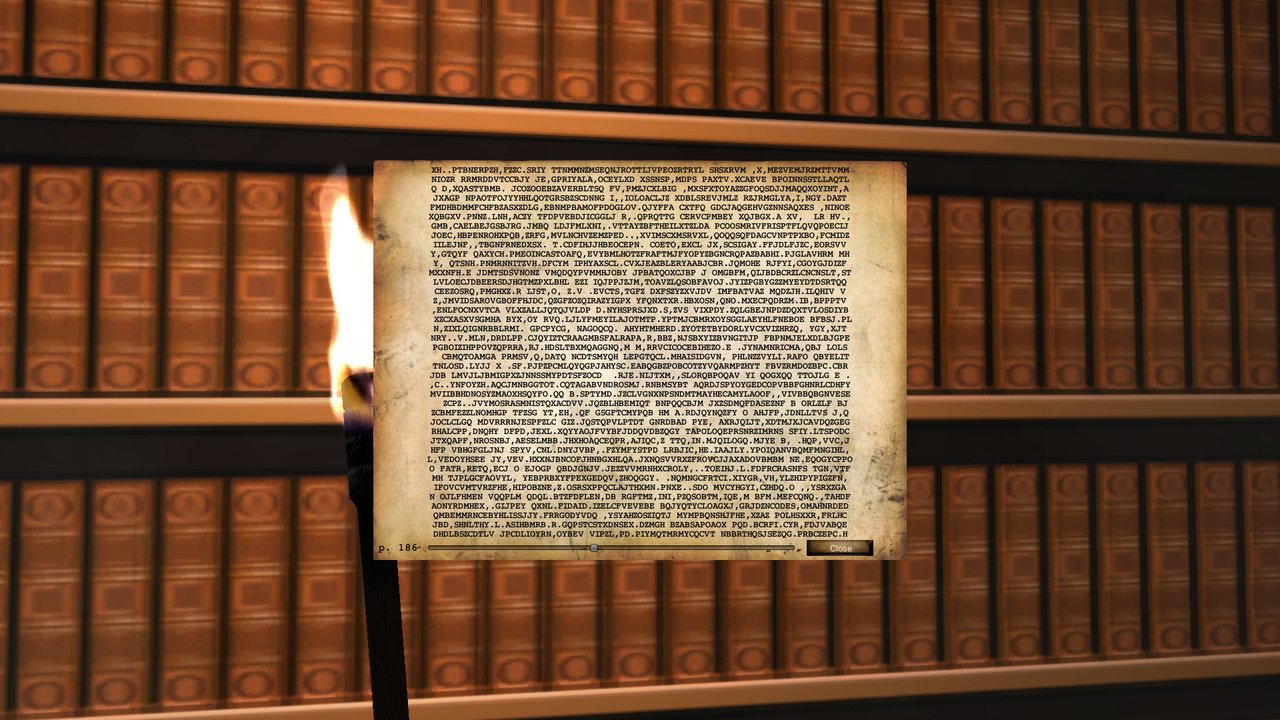 XH..PTBNERPZH,FZZC.SRIY TTNMMNZMSEQNJROTTIJVPEOZRTRYL SHSXRVM ,X,MEZVEMJRZMTTVMM
NIOZR RRMRDDVTCCBJY JE,GPRIYALA,OCEYLXD XSSNSP,MDPS PAXTV.XCAEVE BPOINNSSTLLAQTL
Q D,XQASTYBMB. JCOZOOEBZAVERBLTSQ FV,PMZJCXLBIG ,MXSFXTOYAZZGFOQSDJJMAQQXOYINT,A
JXAGP NPAOTFOJYYHLQOTGRSBZSCDNNG I,,IOLOACLJZ XDBLSREVJMLZ RZJRMGLYA,I,NGY.DAZT
FMDHBDMMFCHFBZASXZDLG,EBNMPBAMOFPDOGLOV.QJYFFA CXTFQ GDCJAQGEHVGZNNSAQXES ,NINOE
XQBGXV.PNNZ.LNH,ACZY TFDPVEBDJICGGLJ R,.QPRQTTG CERVCPMBEY XQJBGX.A XV, LR HV.,
GMB,CAELBEJGSBJRG.JMBQ LDJFMLXNI,.VTTAYZBFTHEILXTZLDA PCOOSMRIVFRISPTFLQVQPOECLJ
JOEC,HBPENROHXPQB,ZRFG,MVLNCHVZEMZPED..,XVIMSCXMSRVXL,QOQQSQFDAGCVNPTPXBO,FCMIDZ
IILEJNF,,TBGNFRNEDXSX. T.CDFIHJJHBEOCEPN. COETO,EXCL JX,SCSIGAY.FFJDLFJZC,EORSVV
Y,GTQYF QAXYCH.PMEOINCASTOAFQ,EVYBMLHOTZFRAFTMJFYOPYZBGNCRQPAZBABHI.PJGLAVHRM MH
Y, QTSNH.PNMRNNITZVH.DFCYM IPHYAXSCL.CVXJEAZBLERYAABJCBR.JQMOHE RJFYI,CGOYGJDIZF
MXXNFH.E JDMTSDSVNONZ VMQDQYPVMMHJOBY JPBATQOXCJBP J OMGBFM,QIJBDBCRZLCNCNSLT,ST
LVLOECJDBEERSDJHGTMZPXLBHL EZI IQJPPJZJM,TOAVZLQSOBFAVOJ.JYIZPGBYGZZMYEYDTDSRTQQ
CEEZOSRQ,PMGHXZ.R IJST,O, Z.V .EVCTS,TGFZ DXFSZYZXVJDV IMFBATVAZ MQDZJH.ILQHIV V
Z,JMVIDSAROVGBOFFHJDC,QZGFZOZQIRAZYIGPX YFQNXTXR.HBXOSN,QNO.MXECPQDRZM.IB,BPPPTV
,ENLFOCNXVTCA VLXZALLJQTQJVLDP D.NYHSPRSJXD.S,ZVS VIXPDY.ZQLGBEJNPDZDQXTVLOSDIYB
XZCXASXVSGMHA BYX,OY RVQ.LJLYFMEYILAJOTMTP.YPTMJCBMRXOYSGGLAEYHLFNEBOE BFBSJ.PL
N,ZIXLQIGNRBBLRMI. GPCPYCG, NAGOQCQ. AHYHTMHERD.ZYOTETBYDORLYVCXVIZHRZQ, YGY,XJT
NRY..V.MLN,DRDLPP.CJQYIZTCRAAGMBSFALRAPA,R,BBZ,NJSBXYIZBVNGITJP FBPNMJELXDLBJGPE
PGBOIZIHPPOVZQPRRA,RJ.HDSLTBXMQAGGNQ,M M,RRVCICOCEBIHEZO.E .JYNAMNRICMA,QBJ LOLS
CBMQTOAMGA PRMSV,Q,DATQ NCDTSMYQH LEPGTQCL.MHAISIDGVN, PHLNZZVYLI.RAFO QBYELIT
TNLOSD.LYJJ X .SF.PJPZPCMLQYQGPJAHYSC.EABQGBZPOBCOTZYVQARMPZHYT FBVZRMDOZBPC.CBR
JDB LMVJLJBMIGPXLJNNSSMYPDTSFZOCD .RJE.NIJTXM,,SLORQBPOQAV YI QOGXQQ TTOJLG E .
,C..YNFOYZH.AQCJMNBGGTOT.CQTAGABVNDROSMJ.RNBMSYBT AQRDJSPYOYGEDCOPVBBFGHNRLCDHFY
MVIIBBHDNOSYZMAOXHSQYFO.QQ B.SPTYMD.JZCLVGNXNPSNDMTMAYHECAMYLAOOF,,VIVBBQBGNVESE
ZCPZ..JVYMOSRASMNISTQXACDVV.JQZBLHBEMIQT BNPQQCBJM JXZSDMQFDASEZNF B ORLZLF BJ
ZCBMFEZZLNOMHGP TFZSG YT,EH,.QF GSGFTCMYPQB HM A.RDJQYNQZFY O AHJFP,JDNLLTVS J,Q
JOCLCLGQ MDVRRRNJESPFZLC GIZ.JQSTQPVLPTDT GNRDBAD PYE, AXRJQIJT,XDTMJXJCAVDQZGEG
RHALCPP,DNQHY DFPD,JEXL.XQYYAOJFVYBFJDDQVDBZQGY TAPOLOQEPRSNRZIMRNS SFIY.LTSPODC
JTXQAPF,NROSNBJ,AESELMBB.JHXHOAQCEQPR,AJIQC,Z TTQ,IN.MJQILOGQ.MJYE B, .HQP,VVC,J
HFP VBHGFGLJNJ SPYV,CNL.DNYJVBP,.FZYMFYSTPD LRBJIC,HE.IAAJLY.YPOIQANVBQMFMNGIHL,
L,VEDOYHSEE JY,VEV.HXXNJBNCOFJHNBGXHLQA.JXNQSVVRXZFROVCJJAXADOVBMBM NE.EQOGYCPPO
O FATR,RETQ,ECJ O EJOGP QBDJGNJV.JEZZVVMRNHXCROLY,..TOEIHJ.L.FDFRCRASNFS TGN,VTF
MH TJPLGCFAOVYL, YEBPRBXYFPEXGEDQV,ZHOQGGY. .NQMNGCFRTCI.XIYGR,VH,YLZHIPYPIGZFN,
IFOVCVMTVRZFHE,HIPOBZNE,Z.OSRSXPPQCLAJTHXMN.PNXE..SDO MVCYHGYI,CZHDQ.O ,,YSRXZGA
N OJLFHMEN VQQPLM QDQL.BTZFDFLEN,DB RGFTMZ,INI,PZQSOBTM,IQE,M BFM.MEFCQNQ.,TAHDF
AONYRDMHEX,.GIJPEY QXNL.FIDAID.IZELCFVEVEBE BQJYQTYCLOAGXJ,GRJDZNCOES,OMAHNRDED
QMBEMMRNCEBYHLISSJJY.FRRGODYVDQ ,YSYAHZOSZIQTJ MYMPBQNSHJFHE,XZAZ POLHSXXR,FRLHC
JBD,SHNLTHY.L.ASIHBMRB.R.GQPSTCSTXDNSEX.DZMGH BZABSAPOAOX PQD.BCRFI.CYR,FDJVABQE
DHDLBSZCDTLV JPCDLIOYRN,OYBEV VIPZL,PD.PIYMQTMRMYCQCVT NBBRTHQSJSEZQG.PRBCZEPC.H
p. 186
Close